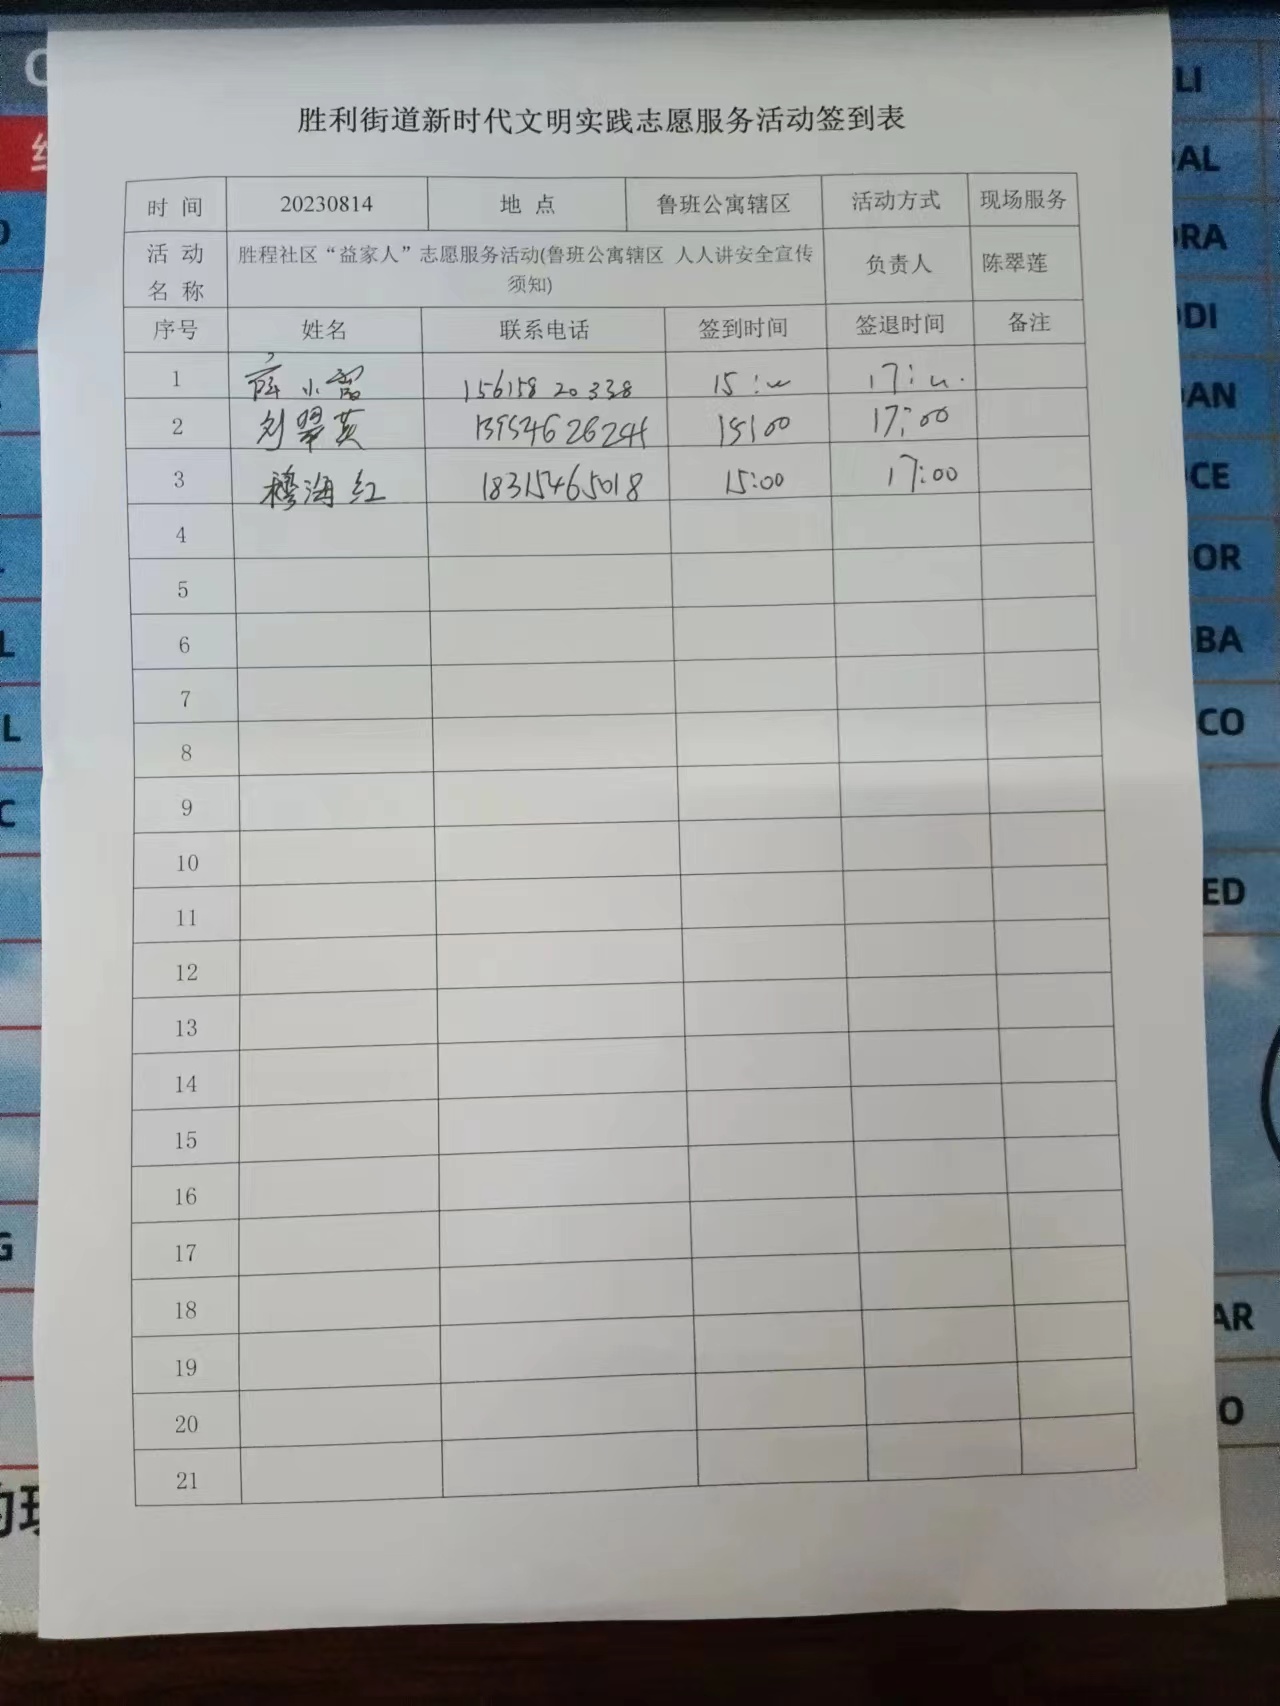 胜利街道新时代文明实践志愿服务活动签到表
时 间 20230814 地 点 鲁班公寓辖区 活动方式 现场服务
活 动 名 称 胜程社区“益家人”志愿服务活动(鲁班公寓辖区 人人讲安全宣传须知) 负责人 陈翠莲
序号 姓名 联系电话 签到时间 签退时间 备注
1 15615820338
2 刘翠英 15:00 17:00
3 穆海红 18315465018 15:00 17:00
4
5
6
7
8
9
10
11
12
13
14
15
16
17
18
19
20
21
LI
AL
RA
DI
AN
CE
OR
BA
CO
ED
AR
O
L
L
C
G